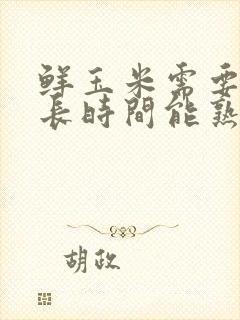 鮮玉米需要
長時間能熟
胡政